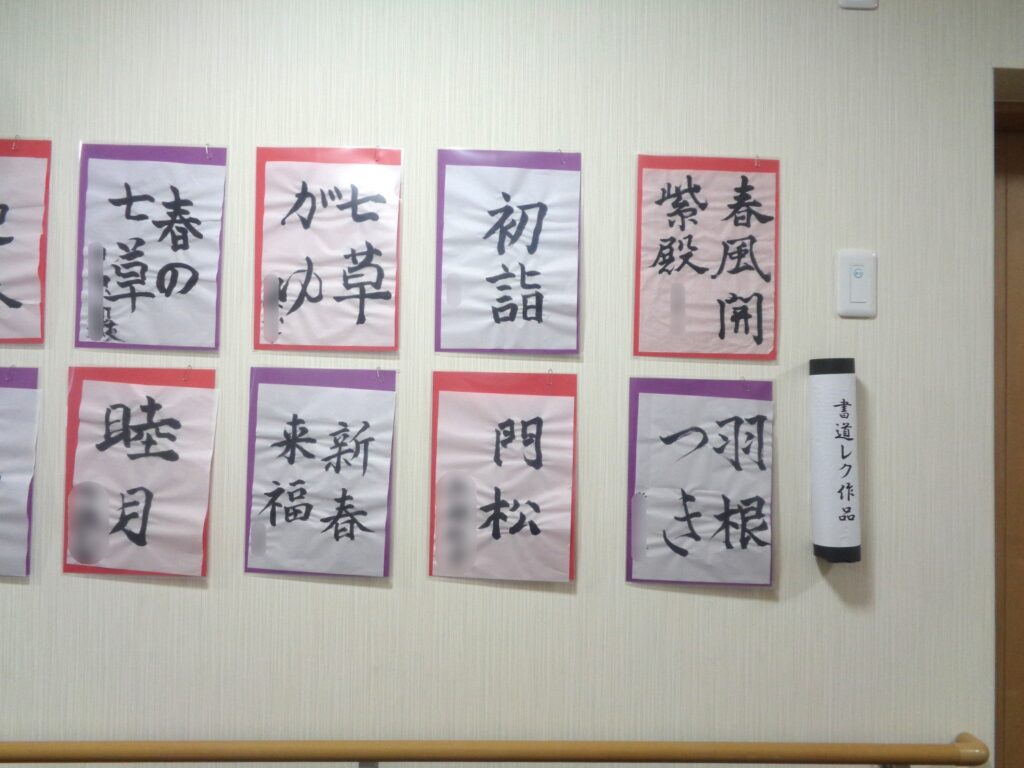 春風開
紫殿
初詣
七草
がゆ
春の
七草
羽根
つき
門松
新春
来福
睦月
書道レク作品